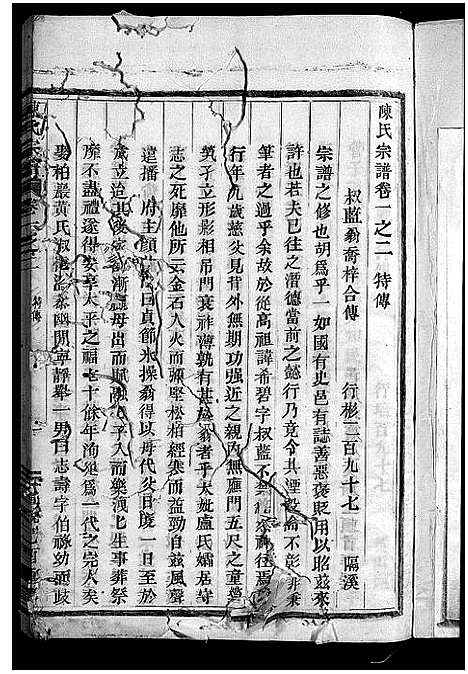 陳氏宗譜卷一之二 特傳
叔藍翁喬梓合傳 行彬二百九十七 隔溪
宗譜之修也胡為乎一如國有史邑有誌善惡褒貶用以昭茲來
許也若夫已往之潛德當前之懿行乃竟令其湮淪不彰非秉
筆者之過乎矣故於從高祖諱希碧字叔藍不禁
行年九歲慈父見背外無期功強近之親內無應門五尺之童煢
煢孑立形影相弔門衰祚薄孰有甚於翁者乎太妣盧氏孀居守
志之死靡他所云金石入火而彌堅松柏經寒而益勁自茲風聲
遠播 府主顏曰貞節氷操翁得以母代父日復一日至於
成立造漸母出而賦洩洩子入而樂洩洩生事葬祭
靡不盡禮遂得安享太平之福七十餘年洵是為一代之完人矣
娶柏巖黃氏叔幽閒寧靜舉一男曰志壽字伯祿幼頭歧
特傳